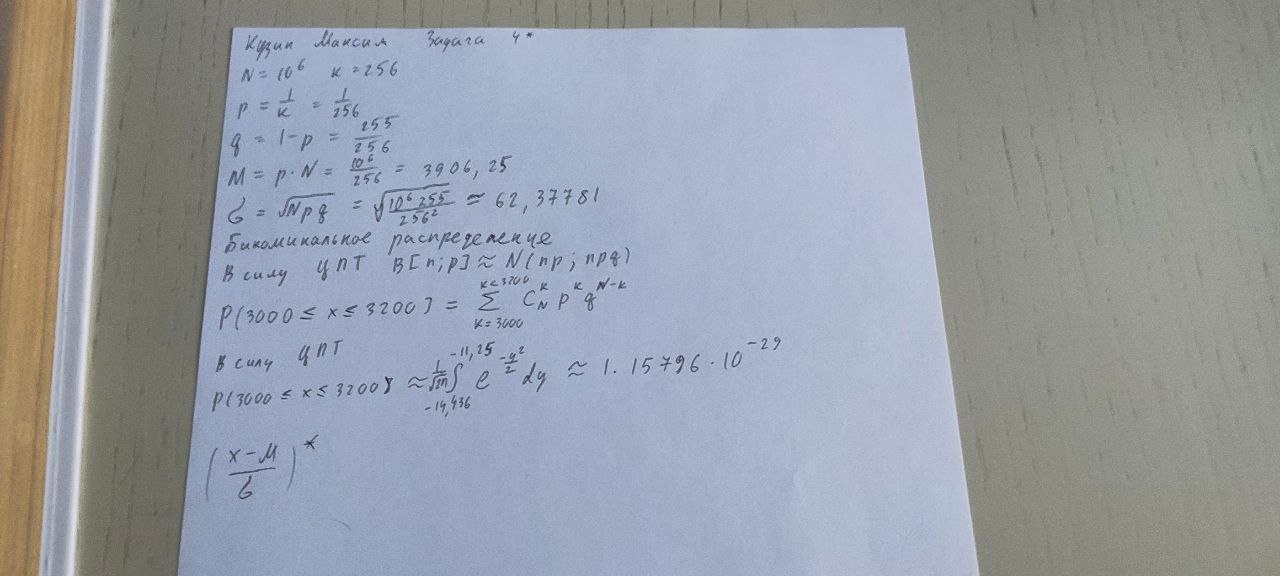 Кузин Максим Задача 4*
N = 10⁶ k = 256
p = 1/k = 1/256
q = 1-p = 255/256
M = p·N = 10⁶/256 = 3906,25
σ = √Npq = √(10⁶ 255/256²) ≈ 62,37781
Биноминальное распределение
В силу ЦПТ B[n;p] ≈ N(np; npq)
P(3000 ≤ x ≤ 3200] = Σ_{k=3000}^{k≤3200} C_N^k p^k q^{N-k}
В силу ЦПТ
P(3000 ≤ x ≤ 3200) ≈ 1/√2π ∫_{-14,436}^{-11,25} e^{-y²/2} dy ≈ 1.15796·10⁻²⁹
(x-M/σ)*